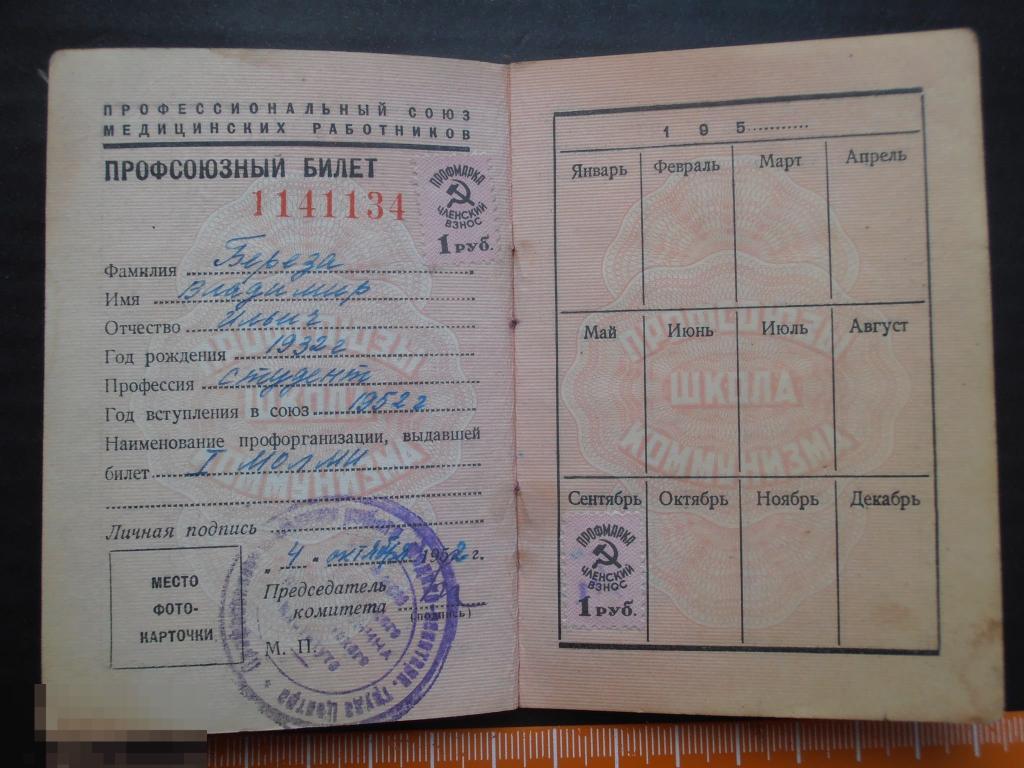 ПРОФЕССИОНАЛЬНЫЙ СОЮЗ
МЕДИЦИНСКИХ РАБОТНИКОВ
ПРОФСОЮЗНЫЙ БИЛЕТ
1141134
ПРОФМАРКА
ЧЛЕНСКИЙ
ВЗНОС
1 РУБ.
Фамилия Береза
Имя Владимир
Отчество Ильич
Год рождения 1932 г
Профессия студент
Год вступления в союз 1952 г
Наименование профорганизации, выдавшей
билет I МОЛМИ
Личная подпись
„4" октября 1952 г.
Председатель
комитета
(подпись)
М. П.
МЕСТО
ФОТО-
КАРТОЧКИ
195
Январь Февраль Март Апрель
Май Июнь Июль Август
ПРОФСОЮЗЫ
ШКОЛА
КОММУНИЗМА
Сентябрь Октябрь Ноябрь Декабрь
ПРОФМАРКА
ЧЛЕНСКИЙ
ВЗНОС
1 РУБ.